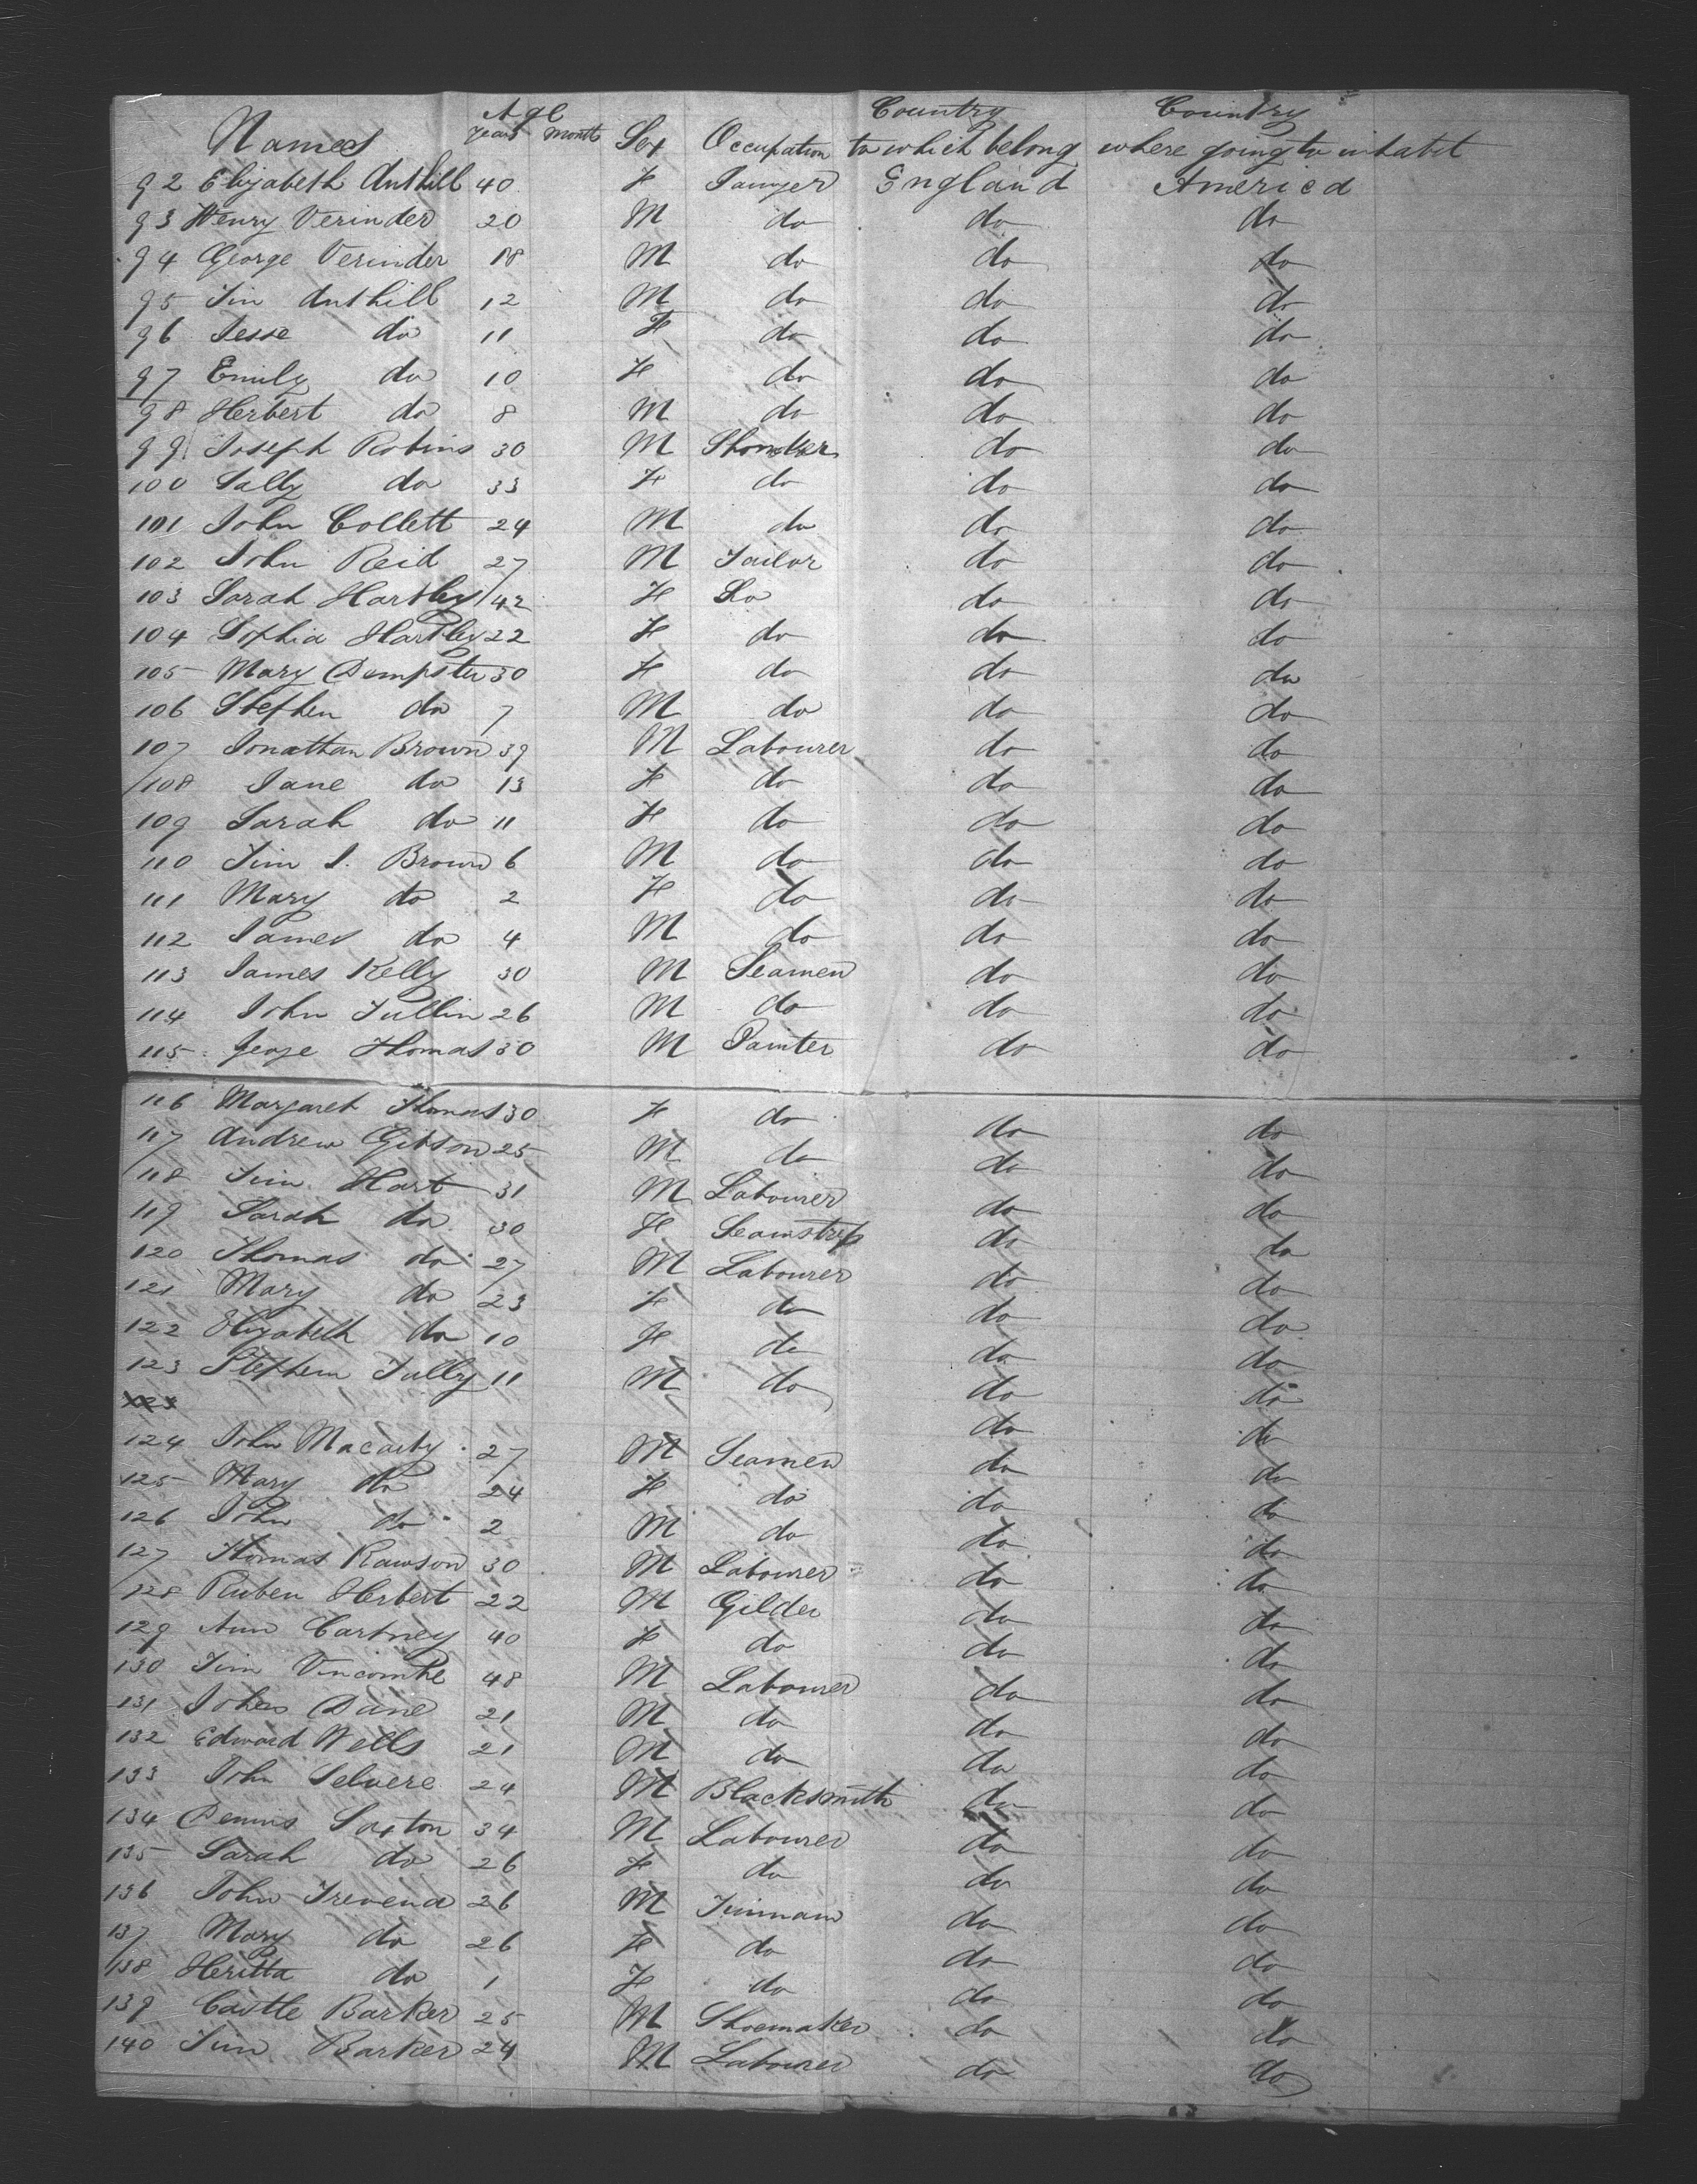 Names Age Years Month Sex Occupation Country to which belong Country where going to inhabit
92 Elizabeth Anthill 40 F Sawyer England America
93 Henry Verinder 20 M do do do
94 George Verinder 18 M do do do
95 Jim Anthill 12 M do do do
96 Jesse do 11 F do do do
97 Emily do 10 F do do do
98 Herbert do 8 M do do do
99 Joseph Robins 30 M do do
100 Sally do 33 F do do do
101 John Collett 24 M do do do
102 John Reid 27 M Tailor do do
103 Sarah Hartley 42 F do do
104 Sophia Hartley 22 F do do do
105 Mary Dempster 30 F do do do
106 Stephen do 7 M do do do
107 Jonathan Brown 39 M Labourer do do
108 Jane do 13 F do do do
109 Sarah do 11 F do do do
110 Jim S. Brown 6 M do do do
111 Mary do 2 F do do do
112 James do 4 M do do do
113 James Kelly 30 M Seamen do do
114 John Tullin 26 M do do do
115 George Thomas 30 M Painter do do
116 Margaret Thomas 30 F do do do
117 Andrew Gibson 25 M do do do
118 Jim Hart 31 M Labourer do do
119 Sarah do 30 F Seamstress do do
120 Thomas do 27 M Labourer do do
121 Mary do 23 F do do do
122 Elizabeth do 10 F do do do
123 Stephen Tully 11 M do do do
123 do do
124 John Macarty 27 M Seamen do do
125 Mary do 24 F do do do
126 John do 2 M do do do
127 Thomas Rawson 30 M Labourer do do
128 Ruben Herbert 22 M Gilder do do
129 Ann Cartney 40 F do do do
130 Jim Vincombe 48 M Labourer do do
131 John Dane 21 M do do do
132 Edward Wells 21 M do do do
133 John Selvere 24 M Blacksmith do do
134 Dennis Saxton 34 M Labourer do do
135 Sarah do 26 F do do do
136 John Trevena 26 M Tinman do do
137 Mary do 26 F do do do
138 Heritta do 1 F do do do
139 Castle Barker 25 M Shoemaker do do
140 Jim Barker 24 M Labourer do do